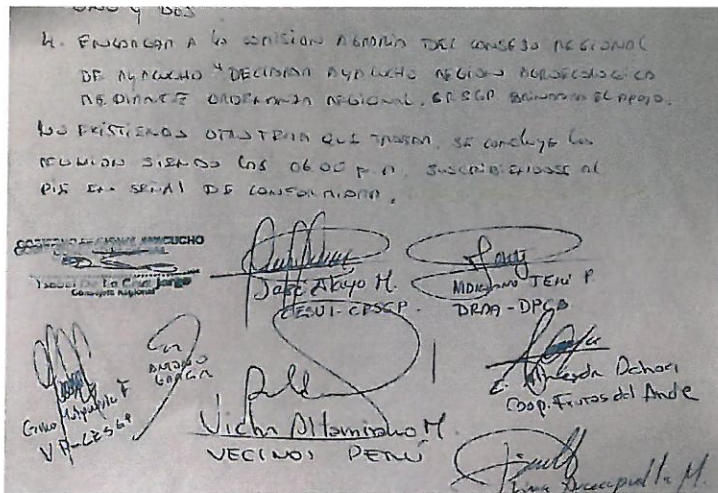 UNO Y DOS
4. ENCARGAR A LA COMISION AGRARIA DEL CONSEJO REGIONAL
DE AYACUCHO "DECLARAR AYACUCHO REGION AGROECOLOGICA
MEDIANTE ORDENANZA REGIONAL, BRINDARA EL APOYO.
NO EXISTIENDO OTRO TEMA QUE TRATAR, SE concluye la
REUNION SIENDO LAS 06.00 p.m. SUSCRIBIENDOSE AL
PIE EN SEÑAL DE CONFORMIDAD.
GOBIERNO REGIONAL AYACUCHO
De La Cruz
Consejera Regional
José Alayo M.
P.
DRAA-DPCA
ANTONIO
GARCIA
Ochoa
Coop. Frutos del Ande
Victor Altamirano M.
VECINOS PERÚ
M.